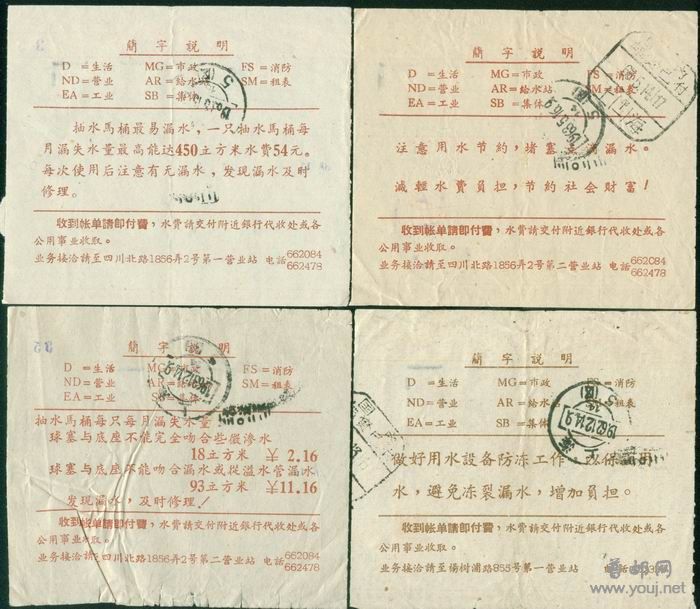 簡字説明
D =生活 MG=市政 FS=消防
ND=营业 AR=給水 SM=租表
EA=工业 SB=集体
抽水馬桶最易漏水，一只抽水馬桶每
月漏失水量最高能达450立方米水費54元。
每次使用后注意有无漏水，发现漏水及时
修理。
收到帐单請即付費，水費請交付附近銀行代收处或各
公用事业收取。
业务接洽請至四川北路1856弄2号第一营业站 电話662084
662478
簡字説明
D =生活 MG=市政 FS=消防
ND=营业 AR=給水站 SM=租表
EA=工业 SB=集体
注意用水节約，堵塞 滴漏水。
減輕水費負担，节約社会財富！
收到帐单請即付費，水費請交付附近銀行代收处或各
公用事业收取。
业务接洽請至四川北路1856弄2号第二营业站 电話662084
662478
簡字説明
D =生活 MG=市政 FS=消防
ND=营业 AR=給水 SM=租表
EA=工业 SB=集体
抽水馬桶每只每月漏失水量
球塞与底座不能完全吻合些微滲水
18立方米 ￥2.16
球塞与底座不能吻合漏水或從溢水管漏水
93立方米 ￥11.16
发现漏水，及时修理！
收到帐单請即付費，水費請交付附近銀行代收处或各
公用事业收取。
业务接洽請至四川北路1856弄2号第二营业站 电話662084
662478
簡字説明
D =生活 MG=市政 FS=消防
ND=营业 AR=給水 SM=租表
EA=工业 SB=集体
做好用水設备防冻工作，以保 用
水，避免冻裂漏水，增加負担。
收到帐单請即付費，水費請交付附近銀行代收处或各
公用事业收取。
业务接洽請至楊树浦路855号第一营业站 电話
首邮网
www.youj.net